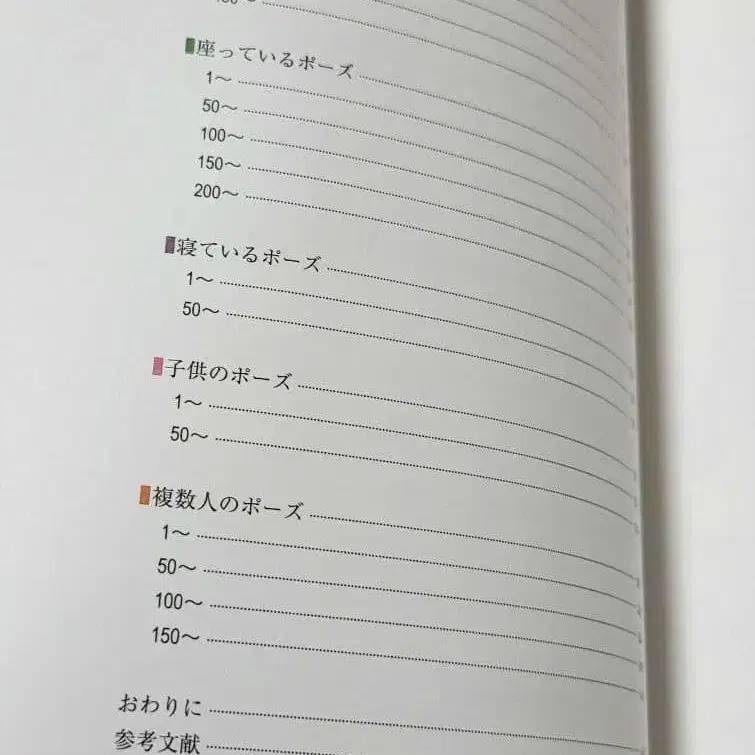 座っているポーズ
1〜
50〜
100〜
150〜
200〜
寝ているポーズ
1〜
50〜
子供のポーズ
1〜
50〜
複数人のポーズ
1〜
50〜
100〜
150〜
おわりに
参考文献